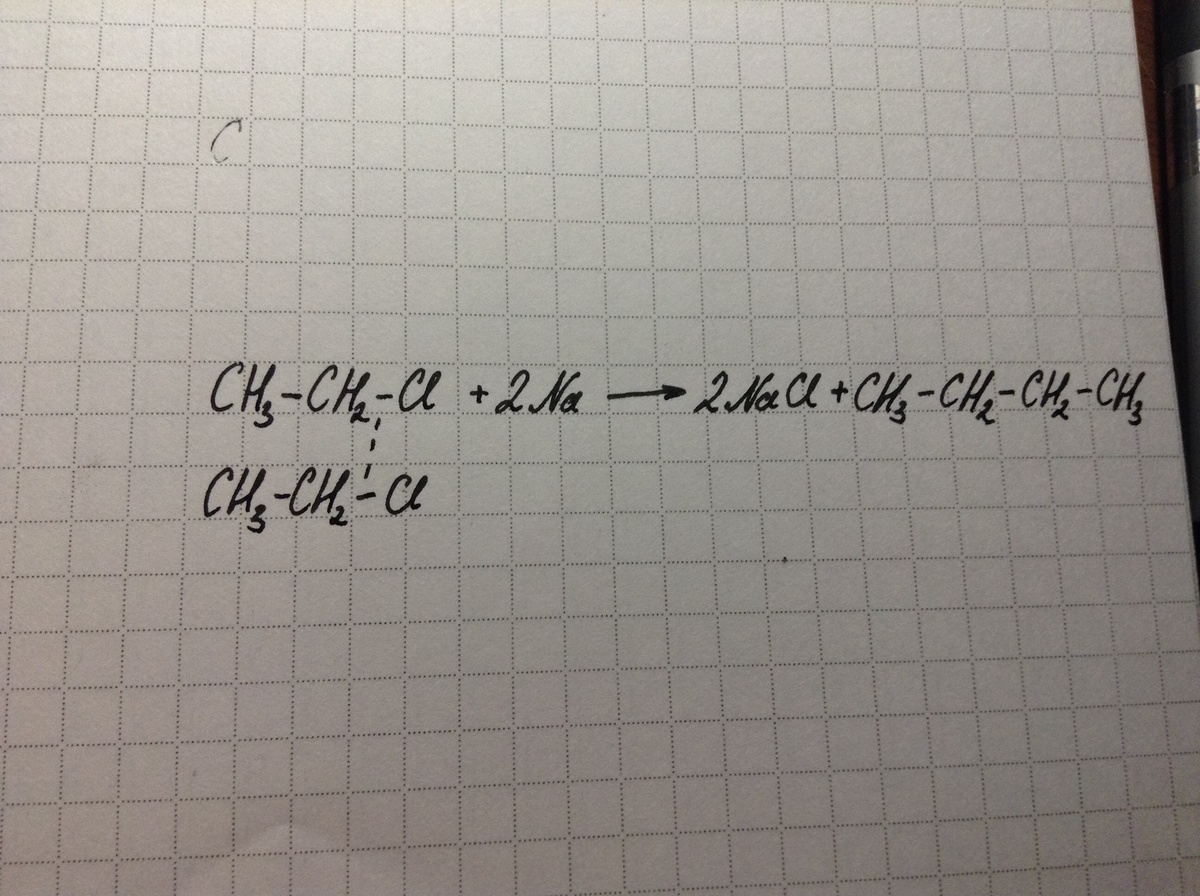 C
CH₃-CH₂-Cl + 2Na → 2NaCl + CH₃-CH₂-CH₂-CH₃
CH₃-CH₂-Cl